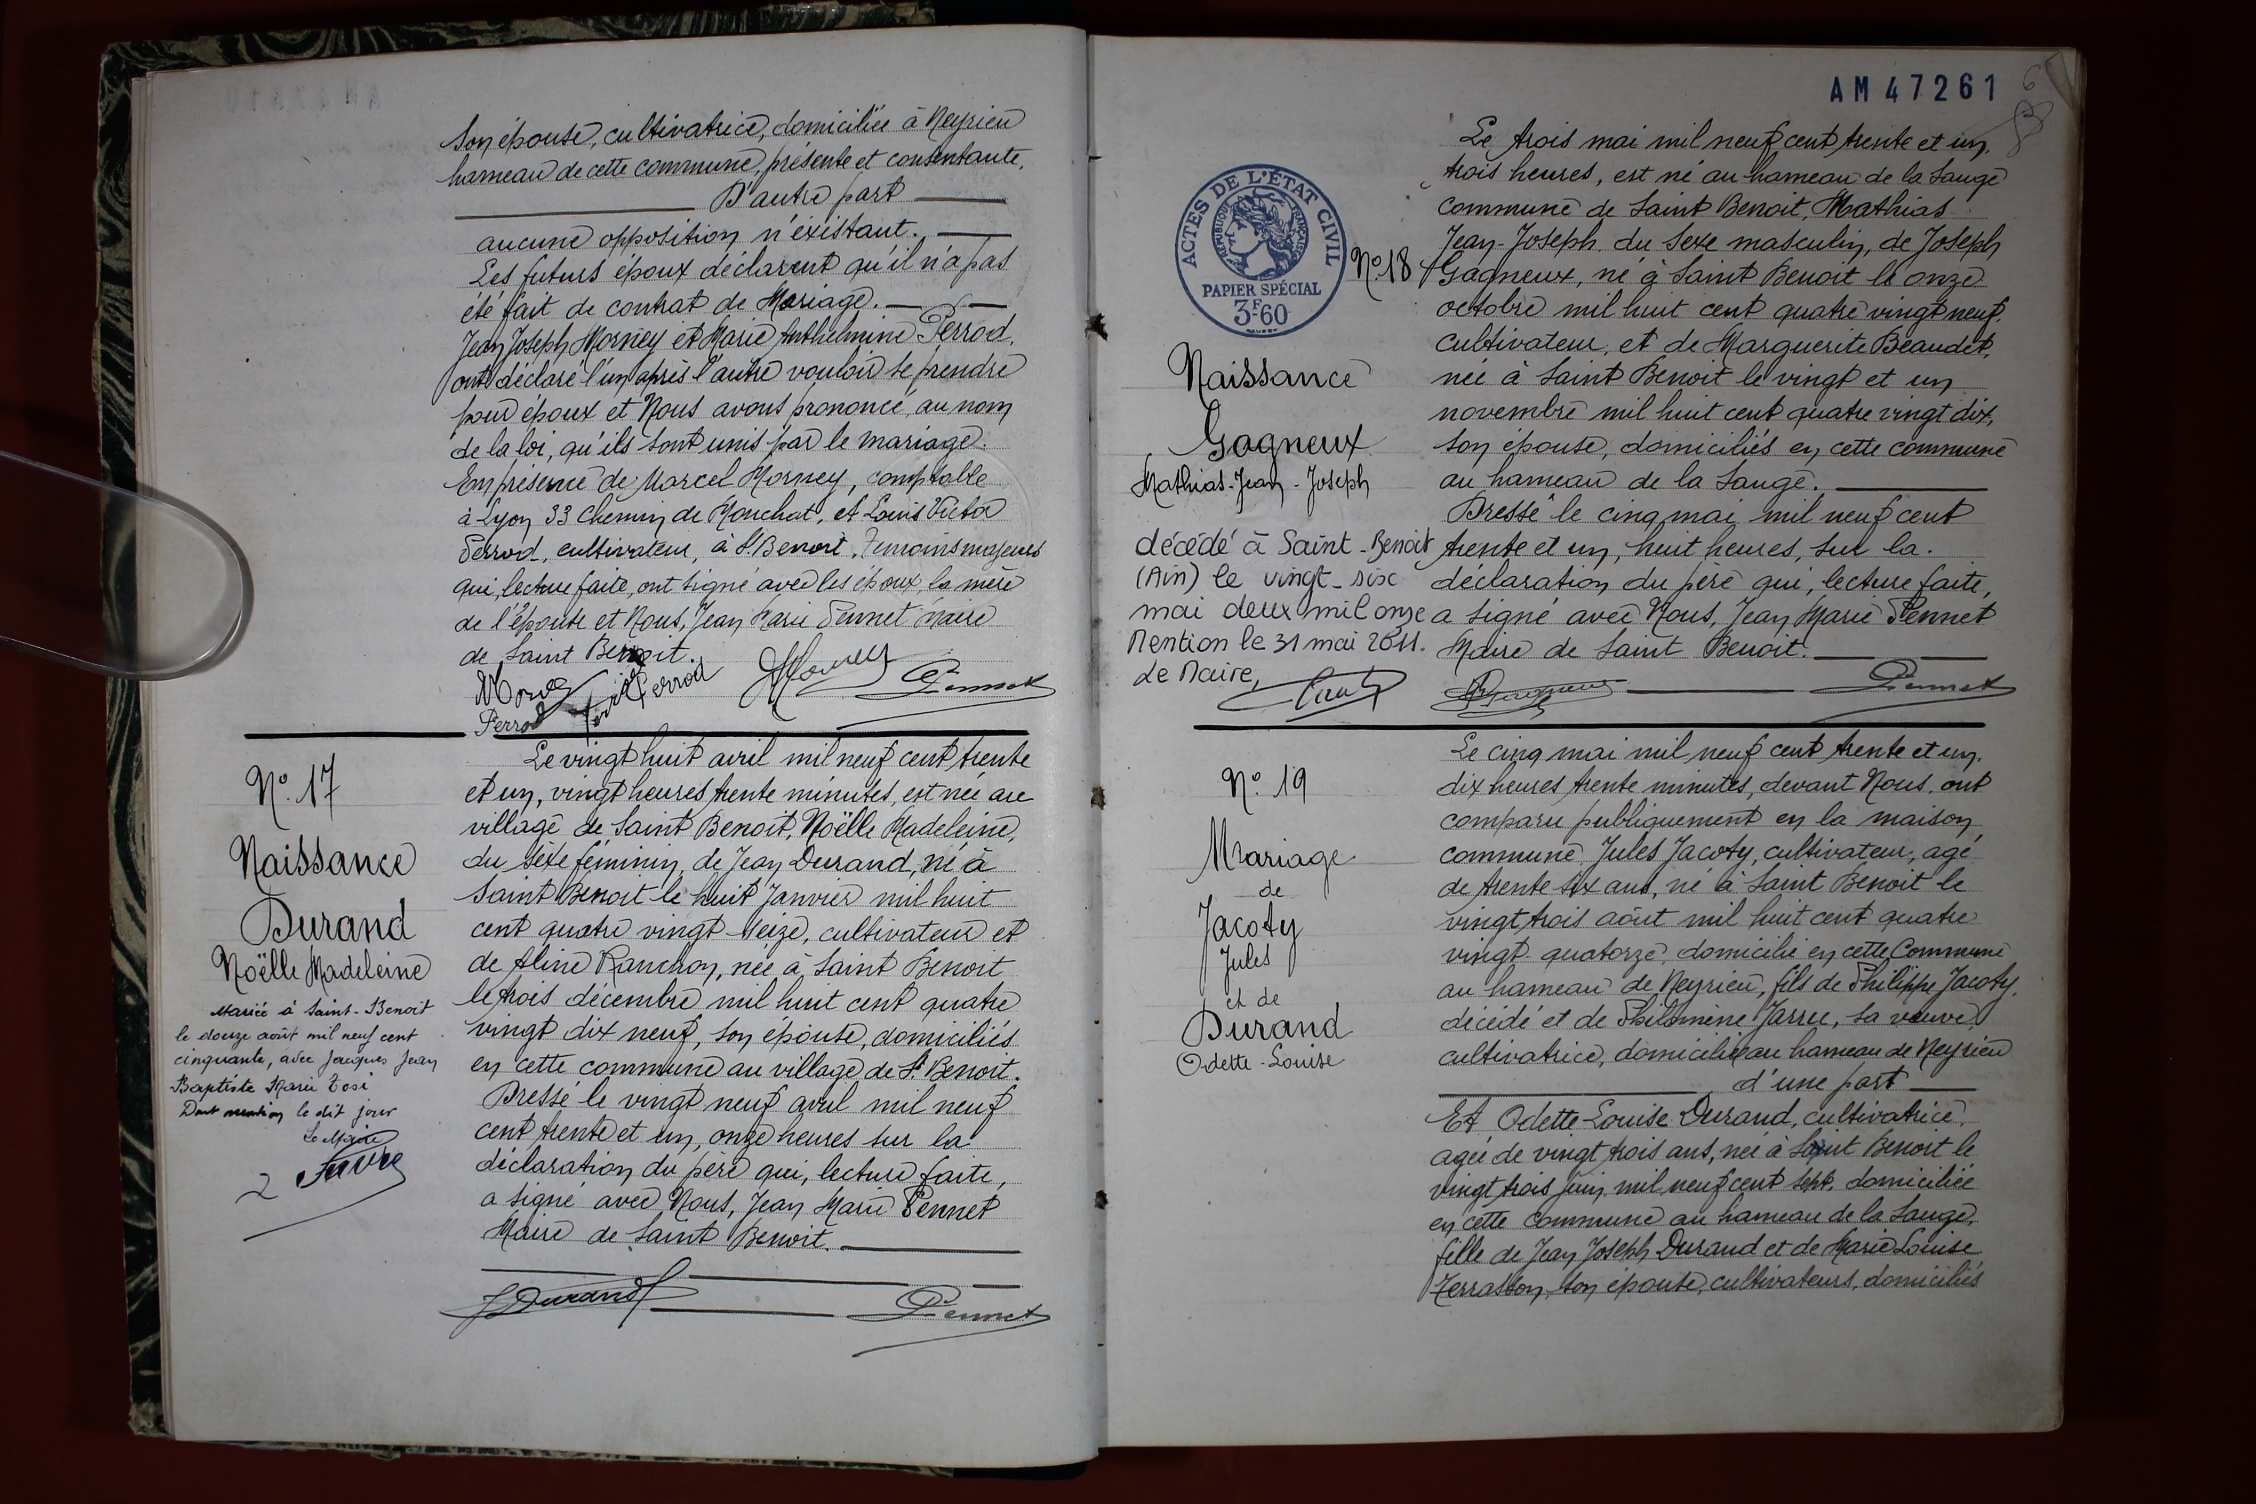 son épouse, cultivatrice, domiciliée à Neyrieu
hameau de cette commune, présente et consentante,
D'autre part
aucune opposition n'éxistant.
Les futurs époux déclarent qu'il n'a pas
été fait de contrat de Mariage.
Jean Joseph Morney et Marie Anthelmine Perrod,
ont déclaré l'un après l'autre vouloir se prendre
pour époux et Nous avons prononcé, au nom
de la loi, qu'ils sont unis par le mariage.
En présence de Marcel Morney, comptable
à Lyon 33 Chemin de Monchat, et Louis Victor
Perrod, cultivateur, à St Benoit, témoins majeurs
qui, lecture faite, ont signé avec les époux, la mère
de l'épouse et Nous, Jean Marie Pennet Maire
de Saint Benoit.
Perrod
Pennet
Perrod
N° 17
Naissance
Durand
Noëlle Madeleine
Mariée à Saint-Benoit
le douze août mil neuf cent
cinquante, avec Jacques Jean
Baptiste Marie Tosi
Dont mention le dit jour
Le Maire
Favre
2
Le vingt huit avril mil neuf cent trente
et un, vingt heures trente minutes, est née au
village de Saint Benoit, Noëlle Madeleine,
du sèxe féminin, de Jean Durand, né à
Saint Benoit le huit Janvier mil huit
cent quatre vingt seize, cultivateur et
de Aline Ranchon, née à Saint Benoit
le trois décembre mil huit cent quatre
vingt dix neuf, son épouse, domiciliés
en cette commune au village de St Benoit.
Dressé le vingt neuf avril mil neuf
cent trente et un, onze heures sur la
déclaration du père qui, lecture faite,
a signé avec Nous, Jean Marie Pennet
Maire de Saint Benoit.
JDurand
Pennet
AM 47261
6
ACTES DE L'ÉTAT CIVIL
RÉPUBLIQUE FRANÇAISE
PAPIER SPÉCIAL
3F60
N° 18
Naissance
Gagneux
Mathias-Jean-Joseph
décédé à Saint-Benoit
(Ain) le vingt-six
mai deux mil onze
Mention le 31 mai 2011.
Le Maire,
Le trois mai mil neuf cent trente et un,
trois heures, est né au hameau de la Sauge
commune de Saint Benoit, Mathias
Jean-Joseph du sexe masculin, de Joseph
Gagneux, né à Saint Benoit le onze
octobre mil huit cent quatre vingt neuf,
cultivateur, et de Marguerite Beaudet,
née à Saint Benoit le vingt et un
novembre mil huit cent quatre vingt dix,
son épouse, domiciliés en cette commune
au hameau de la Sauge.
Dressé le cinq mai mil neuf cent
trente et un, huit heures, sur la
déclaration du père qui, lecture faite,
a signé avec Nous, Jean Marie Pennet
Maire de Saint Benoit.
Pennet
N° 19
Mariage
de
Jacoty
Jules
et de
Durand
Odette-Louise
Le cinq mai mil neuf cent trente et un,
dix heures trente minutes, devant Nous, ont
comparu publiquement en la maison
commune Jules Jacoty, cultivateur, agé
de trente six ans, né à Saint Benoit le
vingt trois août mil huit cent quatre
vingt-quatorze, domicilié en cette Commune
au hameau de Neyrieu, fils de Philippe Jacoty,
décédé et de Philomène Jarru, sa veuve,
cultivatrice, domiciliée au hameau de Neyrieu
d'une part
Et Odette-Louise Durand, cultivatrice,
agée de vingt trois ans, née à Saint Benoit le
vingt trois juin mil neuf cent sept, domiciliée
en cette commune au hameau de la Sauge,
fille de Jean Joseph Durand et de Marie Louise
Terrasson, son épouse, cultivateurs, domiciliés